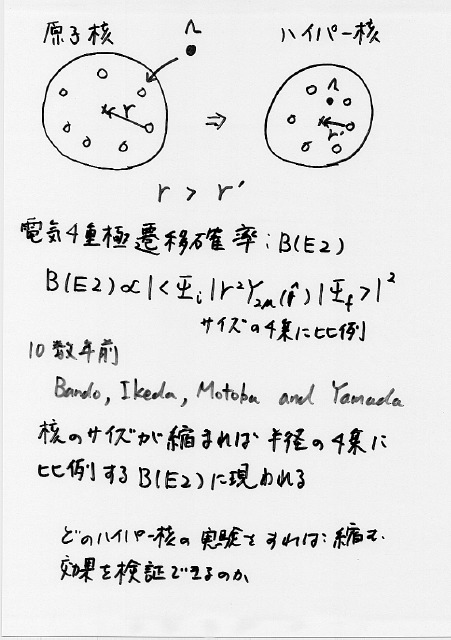 原子核 Λ ハイパー核
Λ
r r'
⇒
r > r'
電気4重極遷移確率:B(E2)
B(E2)∝|<Ψi|r²Y2μ(r̂)|Ψf>|²
サイズの4乗に比例
10数年前
Bando, Ikeda, Motoba and Yamada
核のサイズが縮まれば半径の4乗に
比例するB(E2)に現われる
どのハイパー核の実験をすれば縮む
効果を検証できるのか